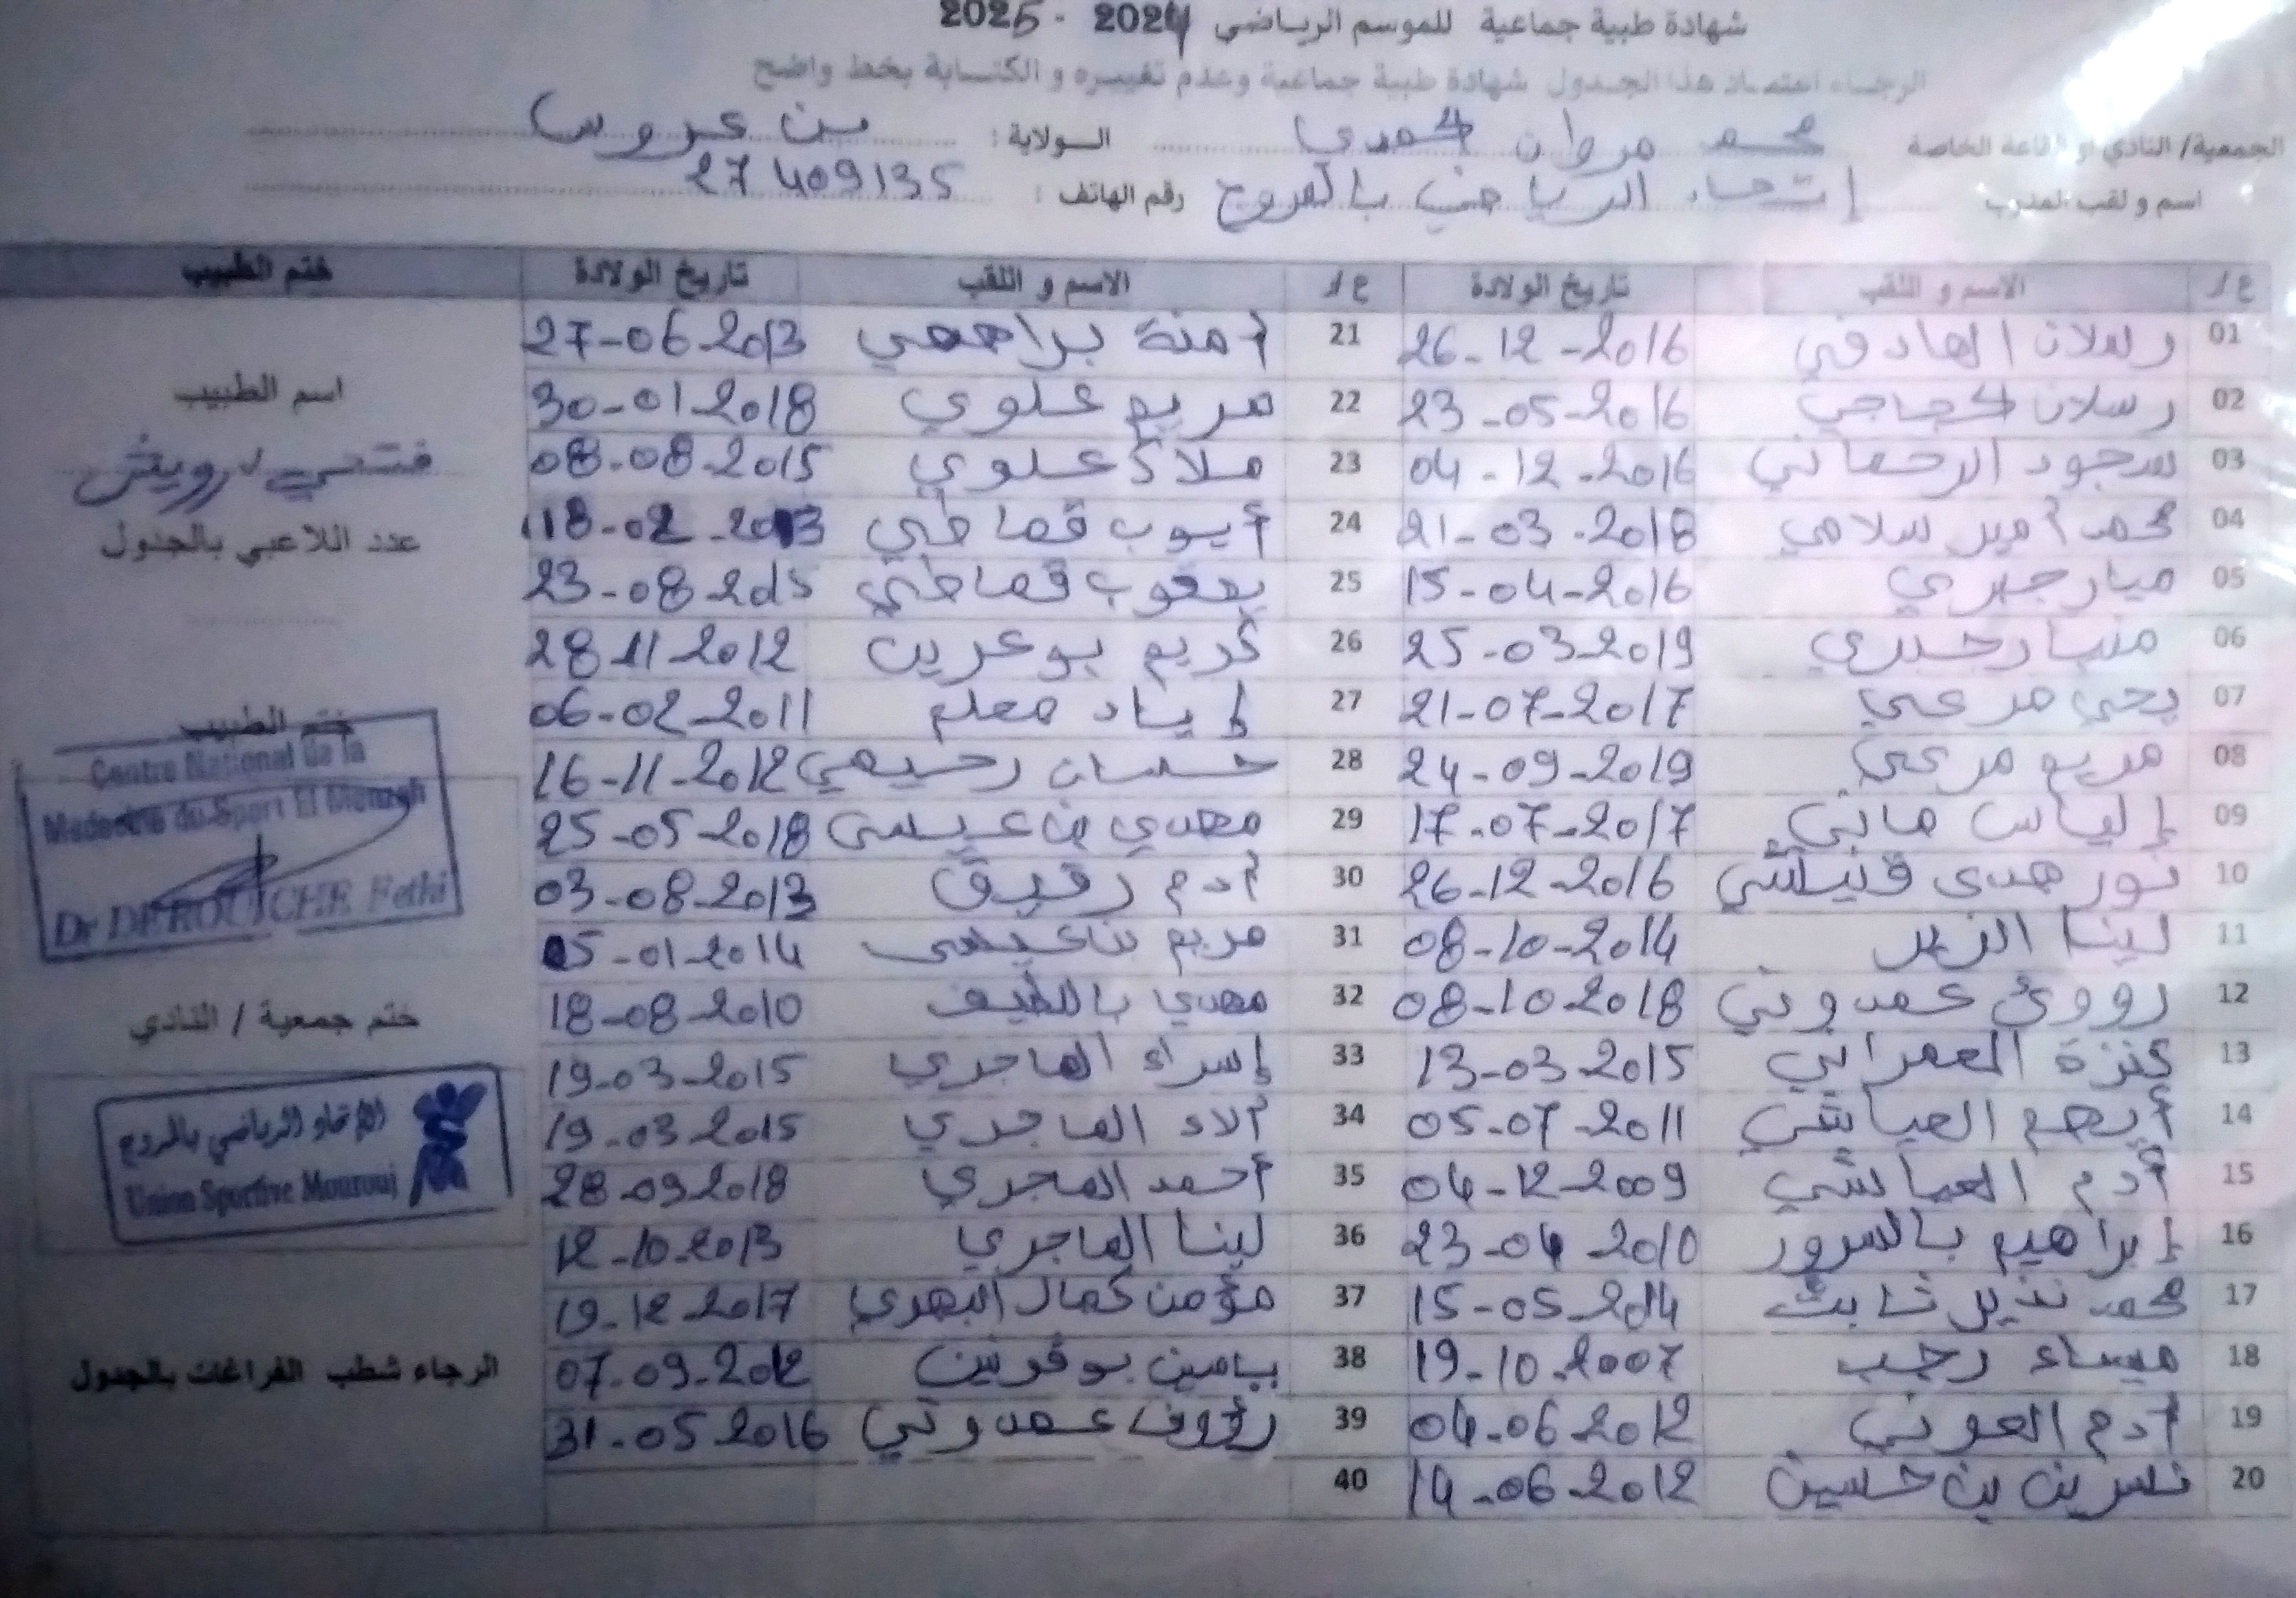 شهادة طبية جماعية للموسم الرياضي 2024 - 2025
الرجاء اعتماد هذا الجدول شهادة طبية جماعية وعدم تغييره و الكتابة بخط واضح
الجمعية/ النادي او القاعة الخاصة محمد مروان حمدي الولاية : بن عروس
اسم و لقب المدرب إتحاد الرياضي بالمروج رقم الهاتف : 27409135
ع/ر الاسم و اللقب تاريخ الولادة ع/ر الاسم و اللقب تاريخ الولادة ختم الطبيب
01 رسلان الهادفي 26-12-2016 21 آمنة براهمي 27-06-2013
02 رسلان حجاجي 23-05-2016 22 مريم علوي 30-01-2018
03 سجود الرحماني 04-12-2016 23 ملاك علوي 08-08-2015
04 محمد أمين سلامي 21-03-2018 24 أيوب قماطي 18-02-2013
05 ميار جبري 15-04-2016 25 يعقوب قماطي 23-08-2015
06 منيار جبري 25-03-2019 26 كريم بوعرين 28-11-2012
07 يحي مرعي 21-07-2017 27 إياد معلم 06-02-2011
08 مريم مرعي 24-09-2019 28 حسان رحيمي 16-11-2012
09 إلياس ماني 17-07-2017 29 مهدي بن عيسى 25-05-2018
10 نور هدى 26-12-2016 30 آدم رقيق 03-08-2013
11 لينا 08-10-2014 31 مريم بن عيسى 05-01-2014
12 عمدوني 08-10-2018 32 مهدي باللطيف 18-08-2010
13 كنزة العمراني 13-03-2015 33 إسراء الماجري 19-03-2015
14 أيهم العياشي 05-07-2011 34 آلاء الماجري 19-03-2015
15 آدم العياشي 04-12-2009 35 أحمد المجري 28-09-2018
16 إبراهيم بالسرور 23-04-2010 36 لينا الماجري 12-10-2013
17 محمد نذير ثابت 15-05-2014 37 مؤمن كمال 19-12-2017
18 ميساء رجب 19-10-2007 38 ياسين 07-09-2012
19 آدم العوني 04-06-2012 39 رؤوف عمدوني 31-05-2016
20 نسرين بن حسين 14-06-2012 40
اسم الطبيب
فتحي درويش
عدد اللاعبي بالجدول
ختم الطبيب
Centre National de la
Medecine du Sport El Menzah
Dr DEROUICHE Fethi
ختم جمعية / النادي
الإتحاد الرياضي بالمروج
Union Sportive Mourouj
الرجاء شطب الفراغات بالجدول